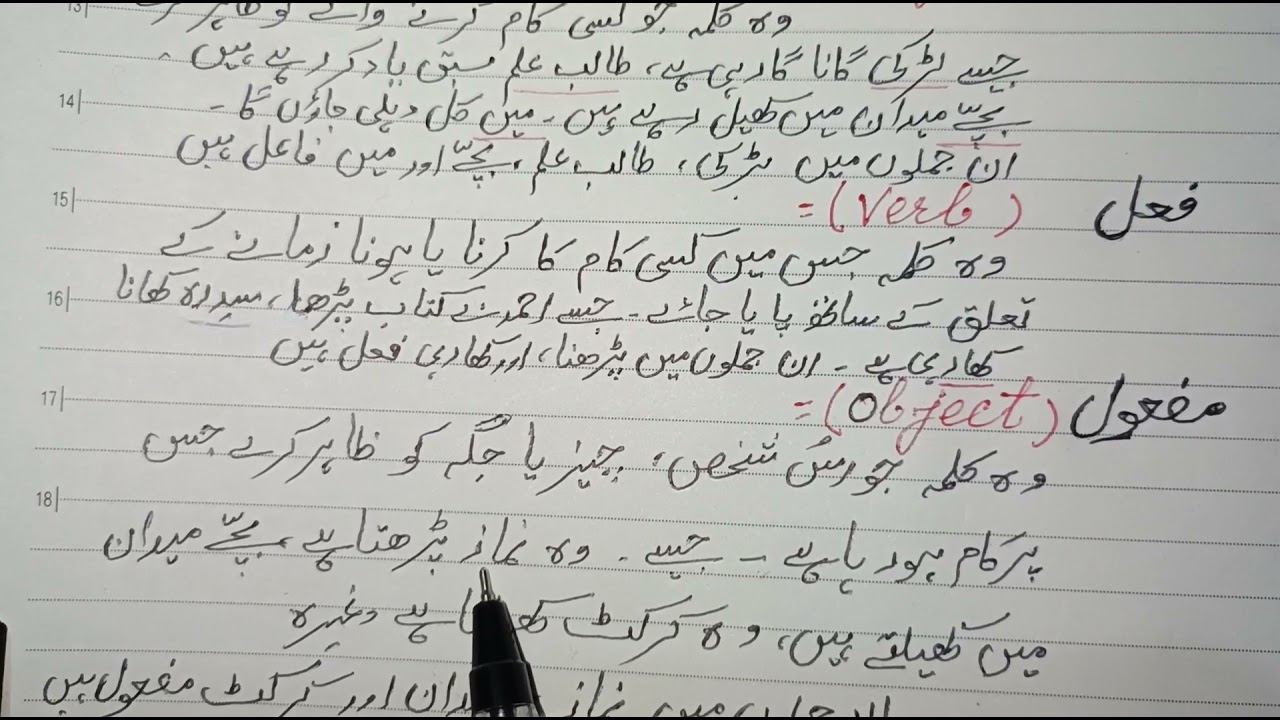 13
وہ کلمہ جو کسی کام کرنے والے کو ظاہر
جیسے لڑکی گانا گا رہی ہے، طالب علم سبق یاد کر رہے ہیں۔
14
بچّے میدان میں کھیل رہے ہیں۔ میں کل دہلی جاؤں گا۔
ان جملوں میں لڑکی، طالب علم، بچّے اور میں فاعل ہیں
15
فعل (Verb) =
وہ کلمہ جس میں کسی کام کا کرنا یا ہونا زمانے کے
16
تعلق کے ساتھ پایا جائے۔ جیسے احمد نے کتاب پڑھا، سیدرہ کھانا
کھا رہی ہے۔ ان جملوں میں پڑھنا، اور کھا رہی فعل ہیں
17
مفعول (Object) =
وہ کلمہ جو اس شخص، چیز یا جگہ کو ظاہر کرے جس
18
پر کام ہو رہا ہے۔ جیسے۔ وہ نماز پڑھتا ہے، بچّے میدان
میں کھیلتے ہیں، وہ کرکٹ ہے وغیرہ
میں نماز اور کرکٹ مفعول ہیں